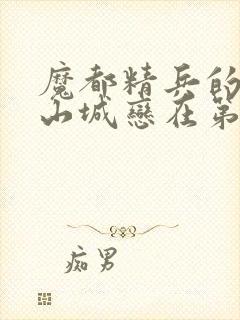 魔都精兵的
山城戀在第
痴男